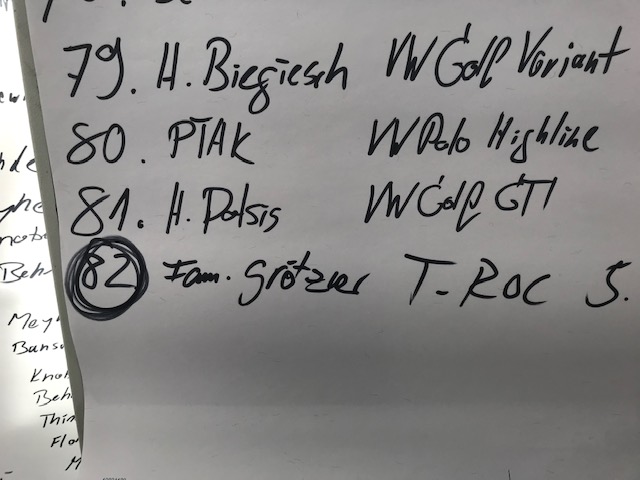 79. H. Biegiesch VW Golf Variant
80. PTAK VW Polo Highline
81. H. Polsis VW Golf GTI
82 Fam. Grötzner T-ROC S.
Beh
Mey
Bans
Knob
Beh
Thin
Flo
M